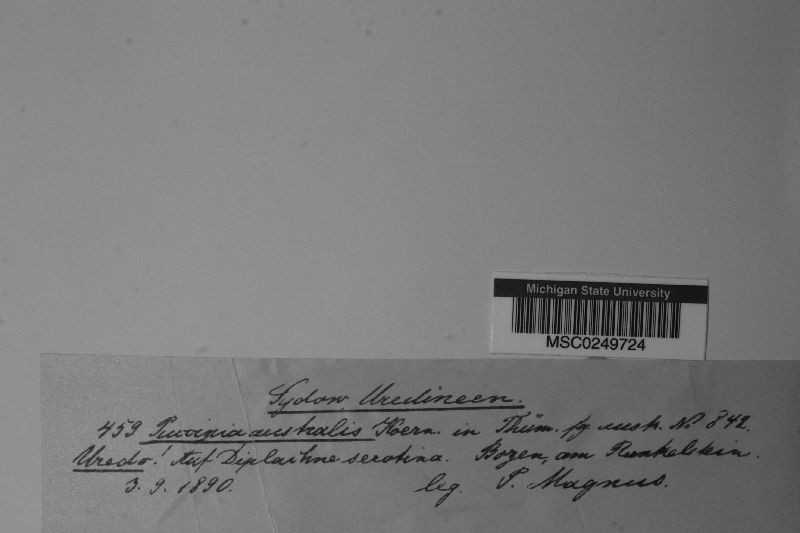 Michigan State University
MSC0249724
Sydow Uredineen.
459 Puccinia australis Koern. in Thüm. fg austr. No 842.
Uredo! Auf Diplachne serotina. Bozen, am Runkelstein.
3. 9. 1890. leg. P. Magnus.